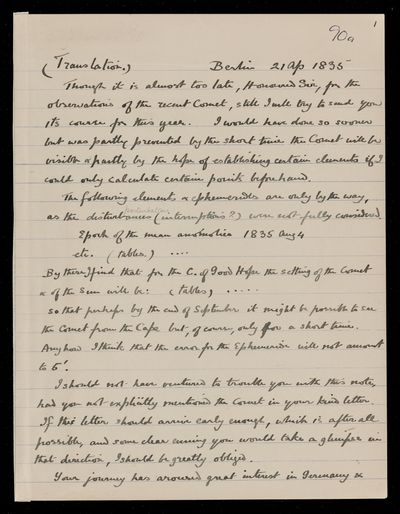 1
90a
(Translation.) Berlin 21 Ap 1835
Though it is almost too late, Honoured Sir, for the
observations of the recent Comet, still I will try to send you
its course for this year. I would have done so sooner
but was partly prevented by the short time the Comet will be
visible & partly by the hope of establishing certain elements if I
could only calculate certain points beforehand.
The following elements & ephemerides are only by the way,
as the disturbances (interruptions?) were not fully considered.
Epoch of the mean anomolies 1835 Aug 4
etc. (tables.) ....
By there I find that for the C. of Good Hope the setting of the Comet
& of the Sun will be: (tables) .....
so that perhaps by the end of September it might be possible to see
the Comet from the Cape but, of course, only for a short time.
Anyhow I think that the error for the Ephemeride will not amount
to 6'.
I should not have ventured to trouble you with this note,
had you not explicitly mentioned the Comet in your kind letter.
If this letter should arrive early enough, which is after all
possible, and some clear evening you would take a glimpse in
that direction, I should be greatly obliged.
Your journey has aroused great interest in Germany &